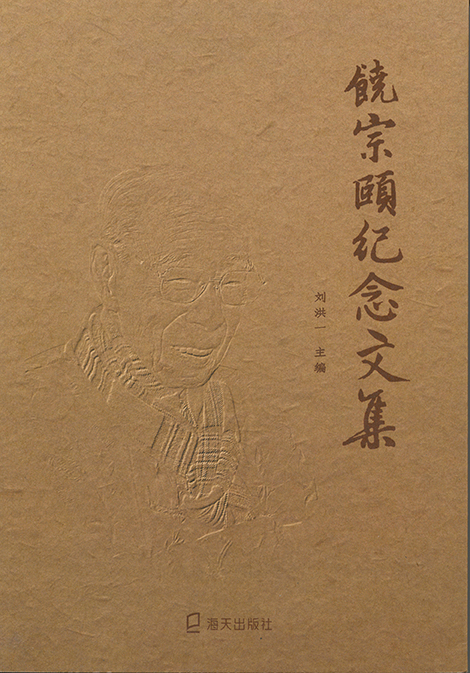 饶宗颐纪念文集
刘洪一 主编
海天出版社